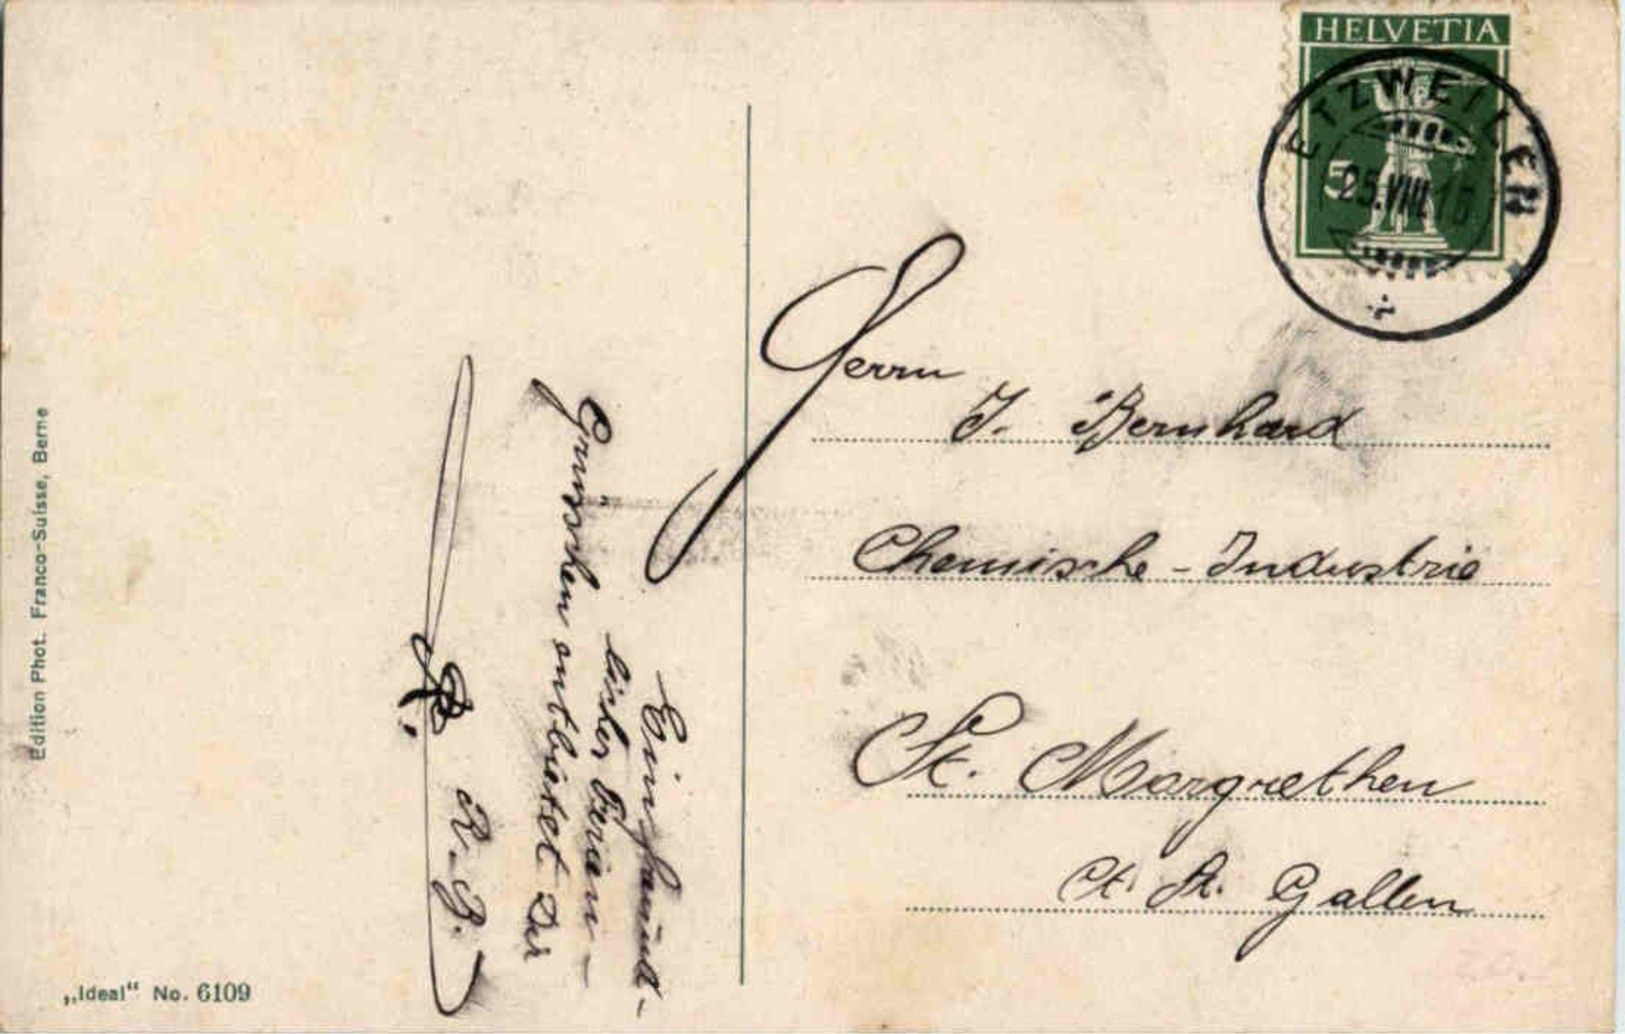 HELVETIA
5
ETZWEILEN
25.VIII.15
Herrn
J. Bernhard
Chemische-Industrie
St. Margrethen
Ct. St. Gallen
Ein freund-
licher Ferien-
Grüsschen entbietet Dir
R. B.
Edition Phot. Franco-Suisse, Berne
„Ideal“ No. 6109
20.-